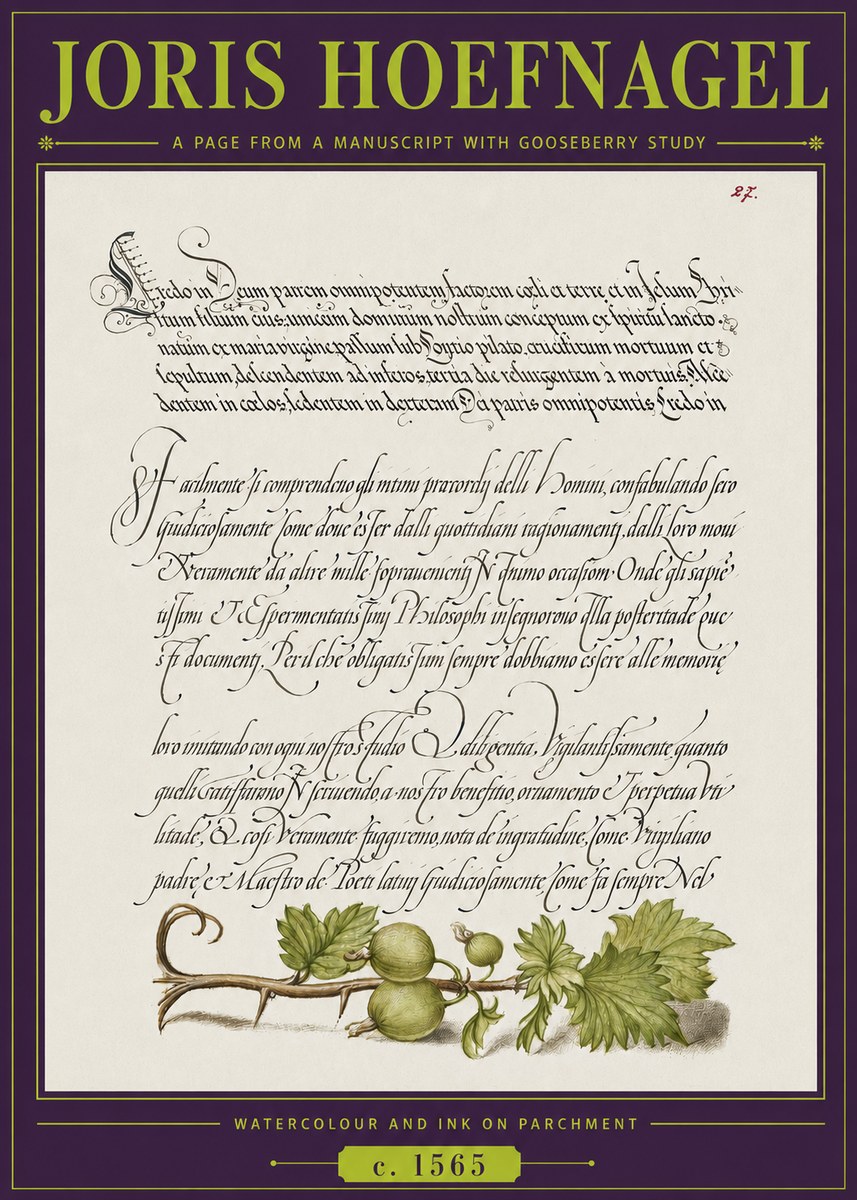 JORIS HOEFNAGEL
A PAGE FROM A MANUSCRIPT WITH GOOSEBERRY STUDY
27.
Credo in Deum patrem omnipotentem factorem cœli et terre et in Jesum Chri
stum filium eius unicum dominum nostrum conceptum ex spiritu sancto
natum ex maria virgine passum sub Pontio pilato, crucifixum mortuum et
sepultum, descendentem ad inferos, tertia die resurgentem à mortuis, Asce
dentem in cœlos, sedentem in dexteram Dei patris omnipotentis Credo in
Facilmente si comprendono gli intimi præcordij delli Homini, confabulando sero
Giudiciosamente Come done esser dalli quottidiani ragionamenti, dalli loro moui
Veramente da altre mille soprauenienti N qnimo occasioni Onde gli sapie
tissimi & Esspermentatissimj Philosophi insegnorono Alla posteritade que
sti documentj. Per il che obligatissimj sempre dobbiamo essere alle memorie
loro imitando con ogni nostro studio & diligentia, Vigilantissamente quanto
quelli satiffarono N scriuendo, a nostro benefitio, ornamento & perpetua vti
litade, & cosi Veramente fuggiremo, nota de ingratudine, Come Virgiliano
padre, & Maestro de Poeti latinj Giudiciosamente, Come fa sempre Nel
WATERCOLOUR AND INK ON PARCHMENT
c. 1565